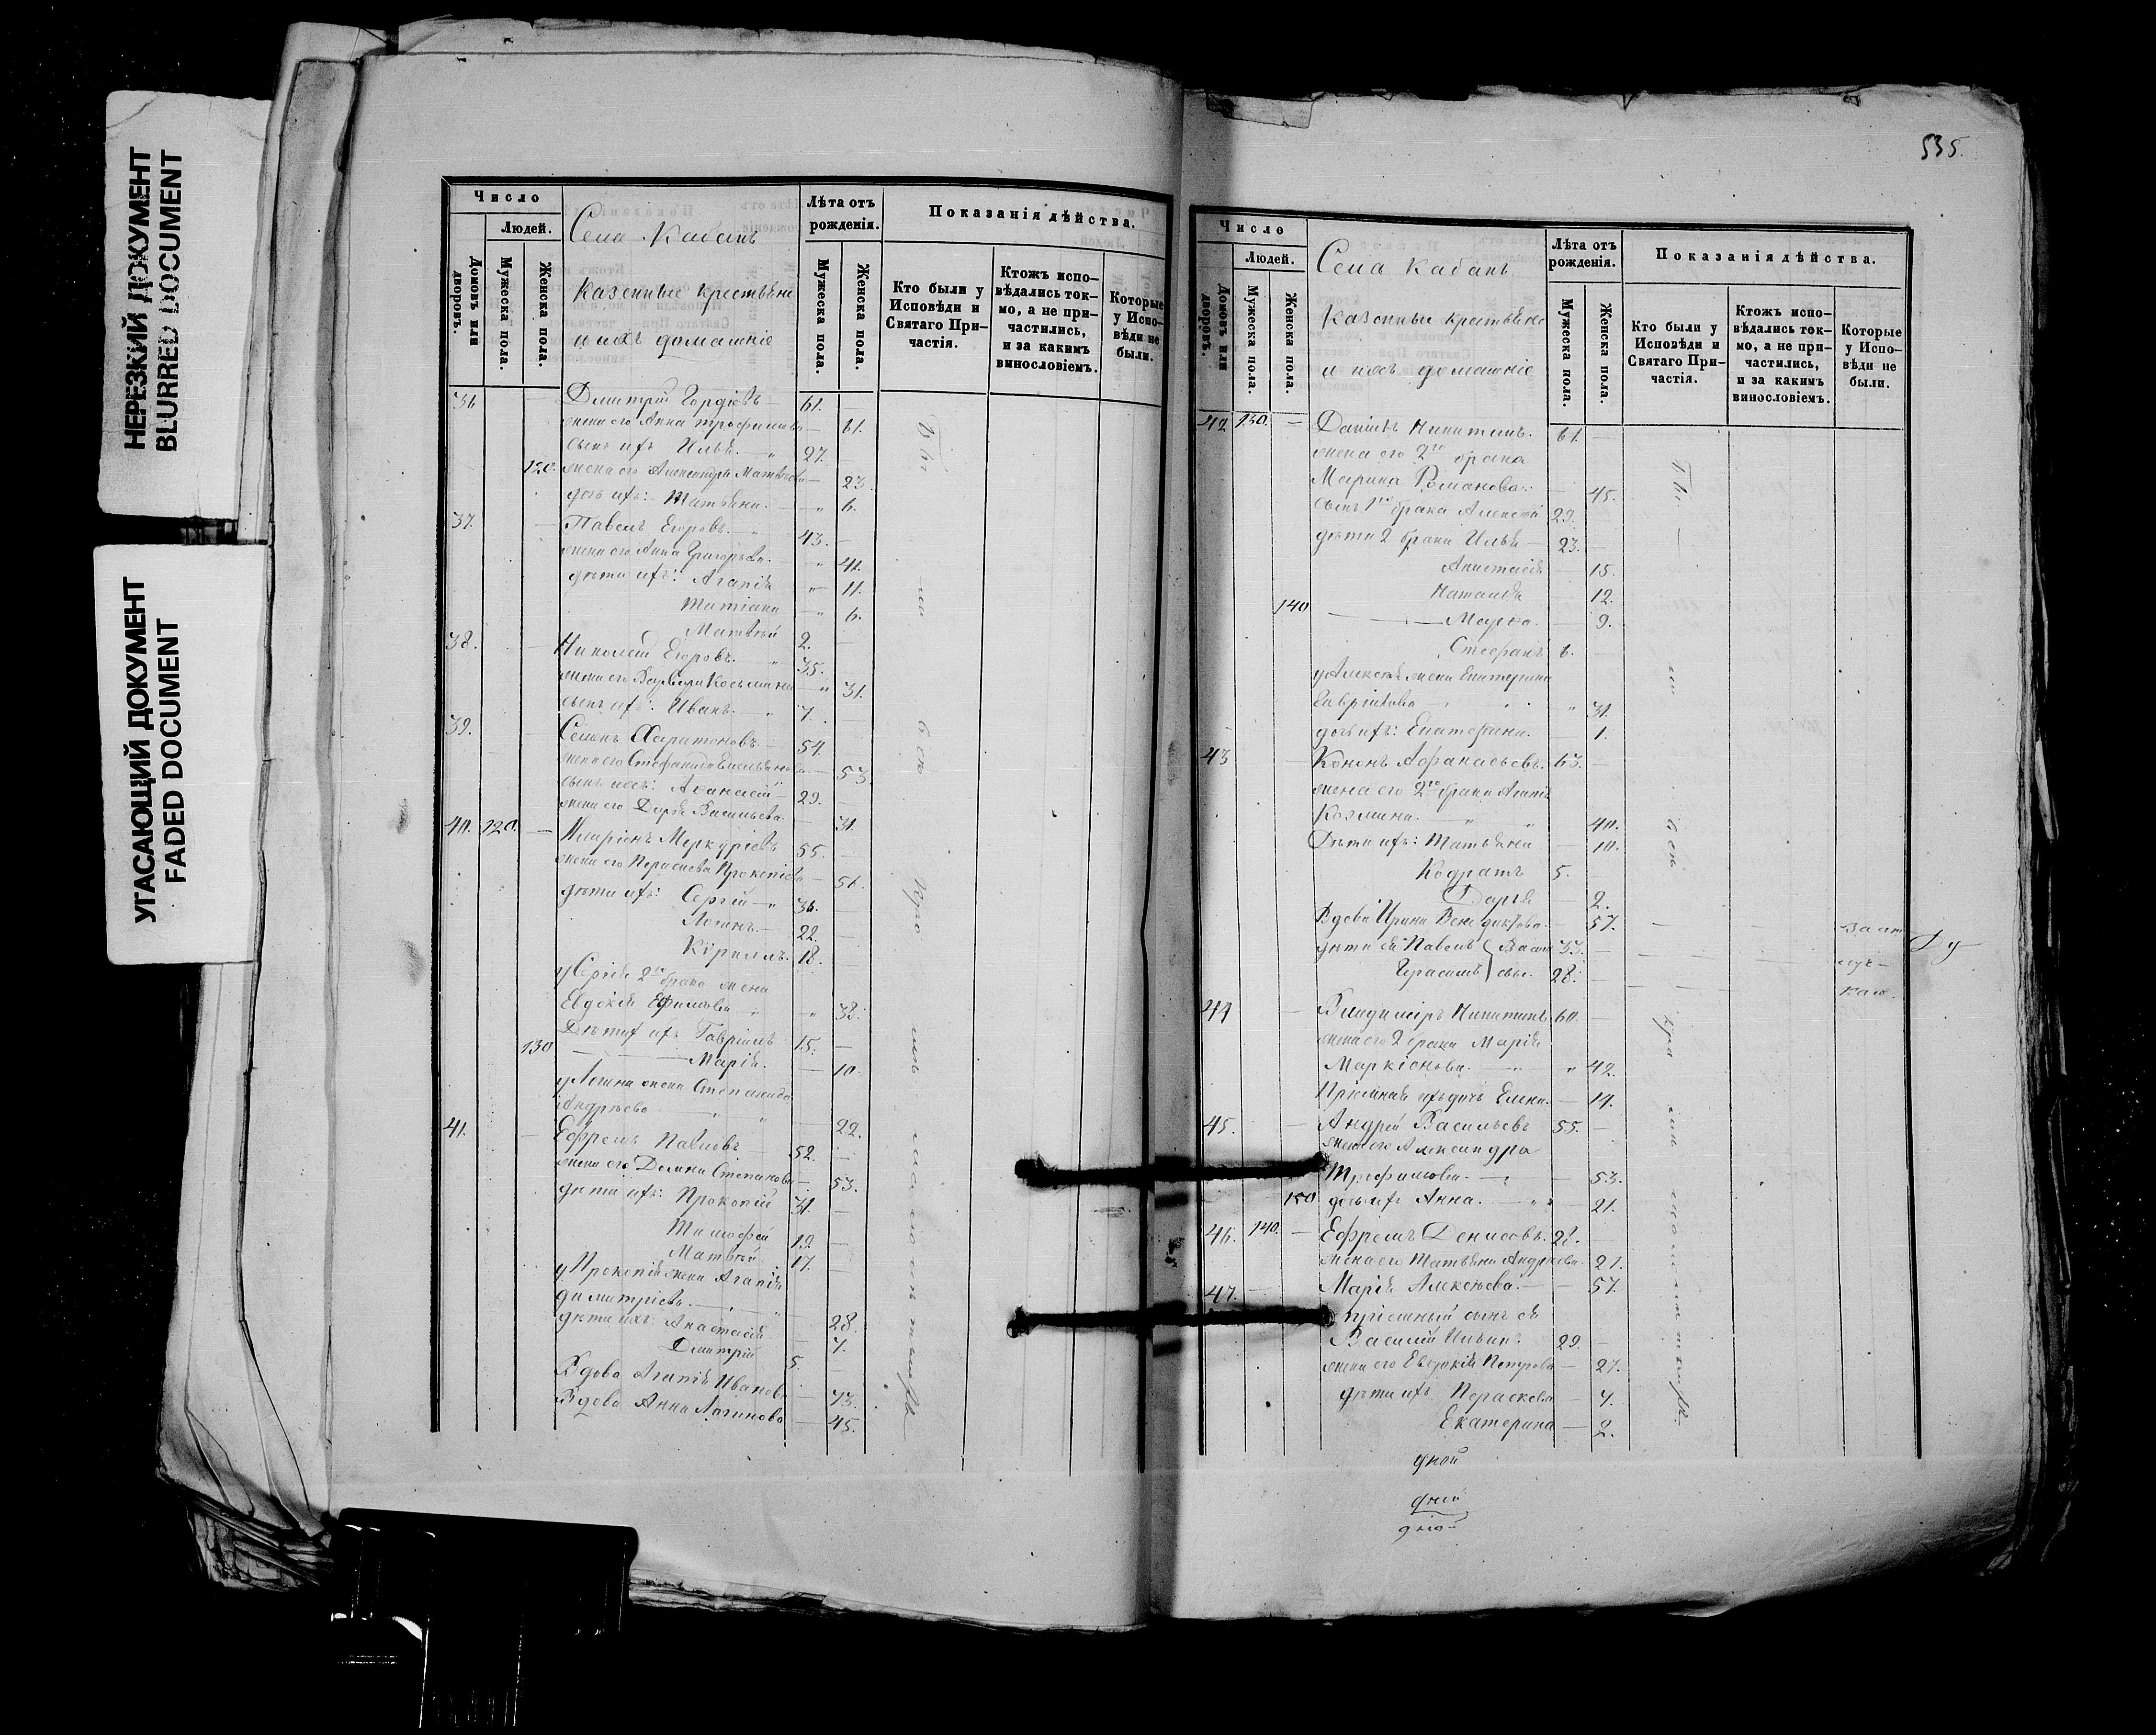 НЕРЕЗКИЙ ДОКУМЕНТ
BLURRED DOCUMENT
УГАСАЮЩИЙ ДОКУМЕНТ
FADED DOCUMENT
Число
Людей.
Домовъ или дворовъ.
Мужеска пола.
Женска пола.
Села Кабанъ
Казенные крестьяне
и ихъ домашніе
Лѣта отъ рожденія.
Мужеска пола.
Женска пола.
Показанія дѣйства.
Кто были у Исповѣди и Святаго При-частія.
Ктожъ испо-вѣдались ток-мо, а не при-частились, и за какимъ винословіемъ.
Которые у Испо-вѣди не были.
36 Дмитрій Гордіевъ 61.
жена его Анна Трофимова 61.
сынъ ихъ Илья 27.
120. жена его Александра Матвѣева 23.
дочь ихъ: Татьяна. 6.
37. Павелъ Егоровъ. 43.
жена его Анна Григорьева. 41.
дѣти ихъ: Агапія 11.
Татіана 6.
Матвѣй 2.
38. Николай Егоровъ. 35.
жена его Варвара Косьмина 31.
сынъ ихъ: Иванъ. 7.
39. Семенъ Харитоновъ. 54.
жена его Стефанида Емельянова 53.
сынъ ихъ: Афанасій 29.
жена его Дарья Васильева. 31.
40. 120. Иларіонъ Меркуріевъ 55.
жена его Параскева Прокопіева 51.
дѣти ихъ: Сергій 36.
Логинъ. 22.
Кириллъ. 18.
у Сергія 2го брака жена
Евдокія Ефимова 38.
Дѣти ихъ Гавріилъ 15.
130 Марія. 10.
у Логина жена Степанида
Андреева 22.
41. Ефремъ Павловъ 52.
жена его Домна Степанова 53.
дѣти ихъ: Прокопій 31.
Тимофей 19.
Матвѣй 17.
у Прокопія жена Агапія
Димитріева. 28.
дѣти ихъ: Анастасія 7.
Дмитрій 5.
Вдова Агапія Иванова 73.
Вдова Анна Логинова 45.
535.
Число
Людей.
Домовъ или дворовъ.
Мужеска пола.
Женска пола.
Села Кабанъ
Казенные крестьяне
и ихъ домашніе
Лѣта отъ рожденія.
Мужеска пола.
Женска пола.
Показанія дѣйства.
Кто были у Исповѣди и Святаго При-частія.
Ктожъ испо-вѣдались ток-мо, а не при-частились, и за какимъ винословіемъ.
Которые у Испо-вѣди не были.
42 130. Даніилъ Никитинъ. 61.
жена его 2го брака
Марина Романова. 45.
сынъ 1го брака Алексей 29.
дѣти 2 брака Илья 23.
Анастасія 15.
Наталія 12.
140 Марѳа. 9.
Стефанъ 6.
у Алексея жена Екатерина
Гаврилова 31.
дочь ихъ: Екатерина. 1.
43 Кононъ Афанасьевъ. 63.
жена его 2го брака Агапія
Козмина. 40.
Дѣти ихъ: Татьяна 10.
Кодратъ 5.
Дарья 2.
Вдова Ирина Венедиктова. 57.
дѣти ея Павелъ 33.
Герасимъ 28.
44 Владиміръ Никитинъ 60.
жена его 2 брака Марія
Маркіонова. 42.
Пріемная ихъ дочь Елена. 14.
45. Андрей Васильевъ 55.
жена его Александра
Трофимова. 53.
150 дочь ихъ Анна. 21.
46. 140. Ефремъ Денисовъ. 28.
жена его Татьяна Андреева. 27.
47. Марія Алексѣева. 57.
пріемный сынъ ея
Василій Ильинъ. 29.
жена его Евдокія Петрова 27.
дѣти ихъ Параскева 4.
Екатерина 2.
дней
дней
дней